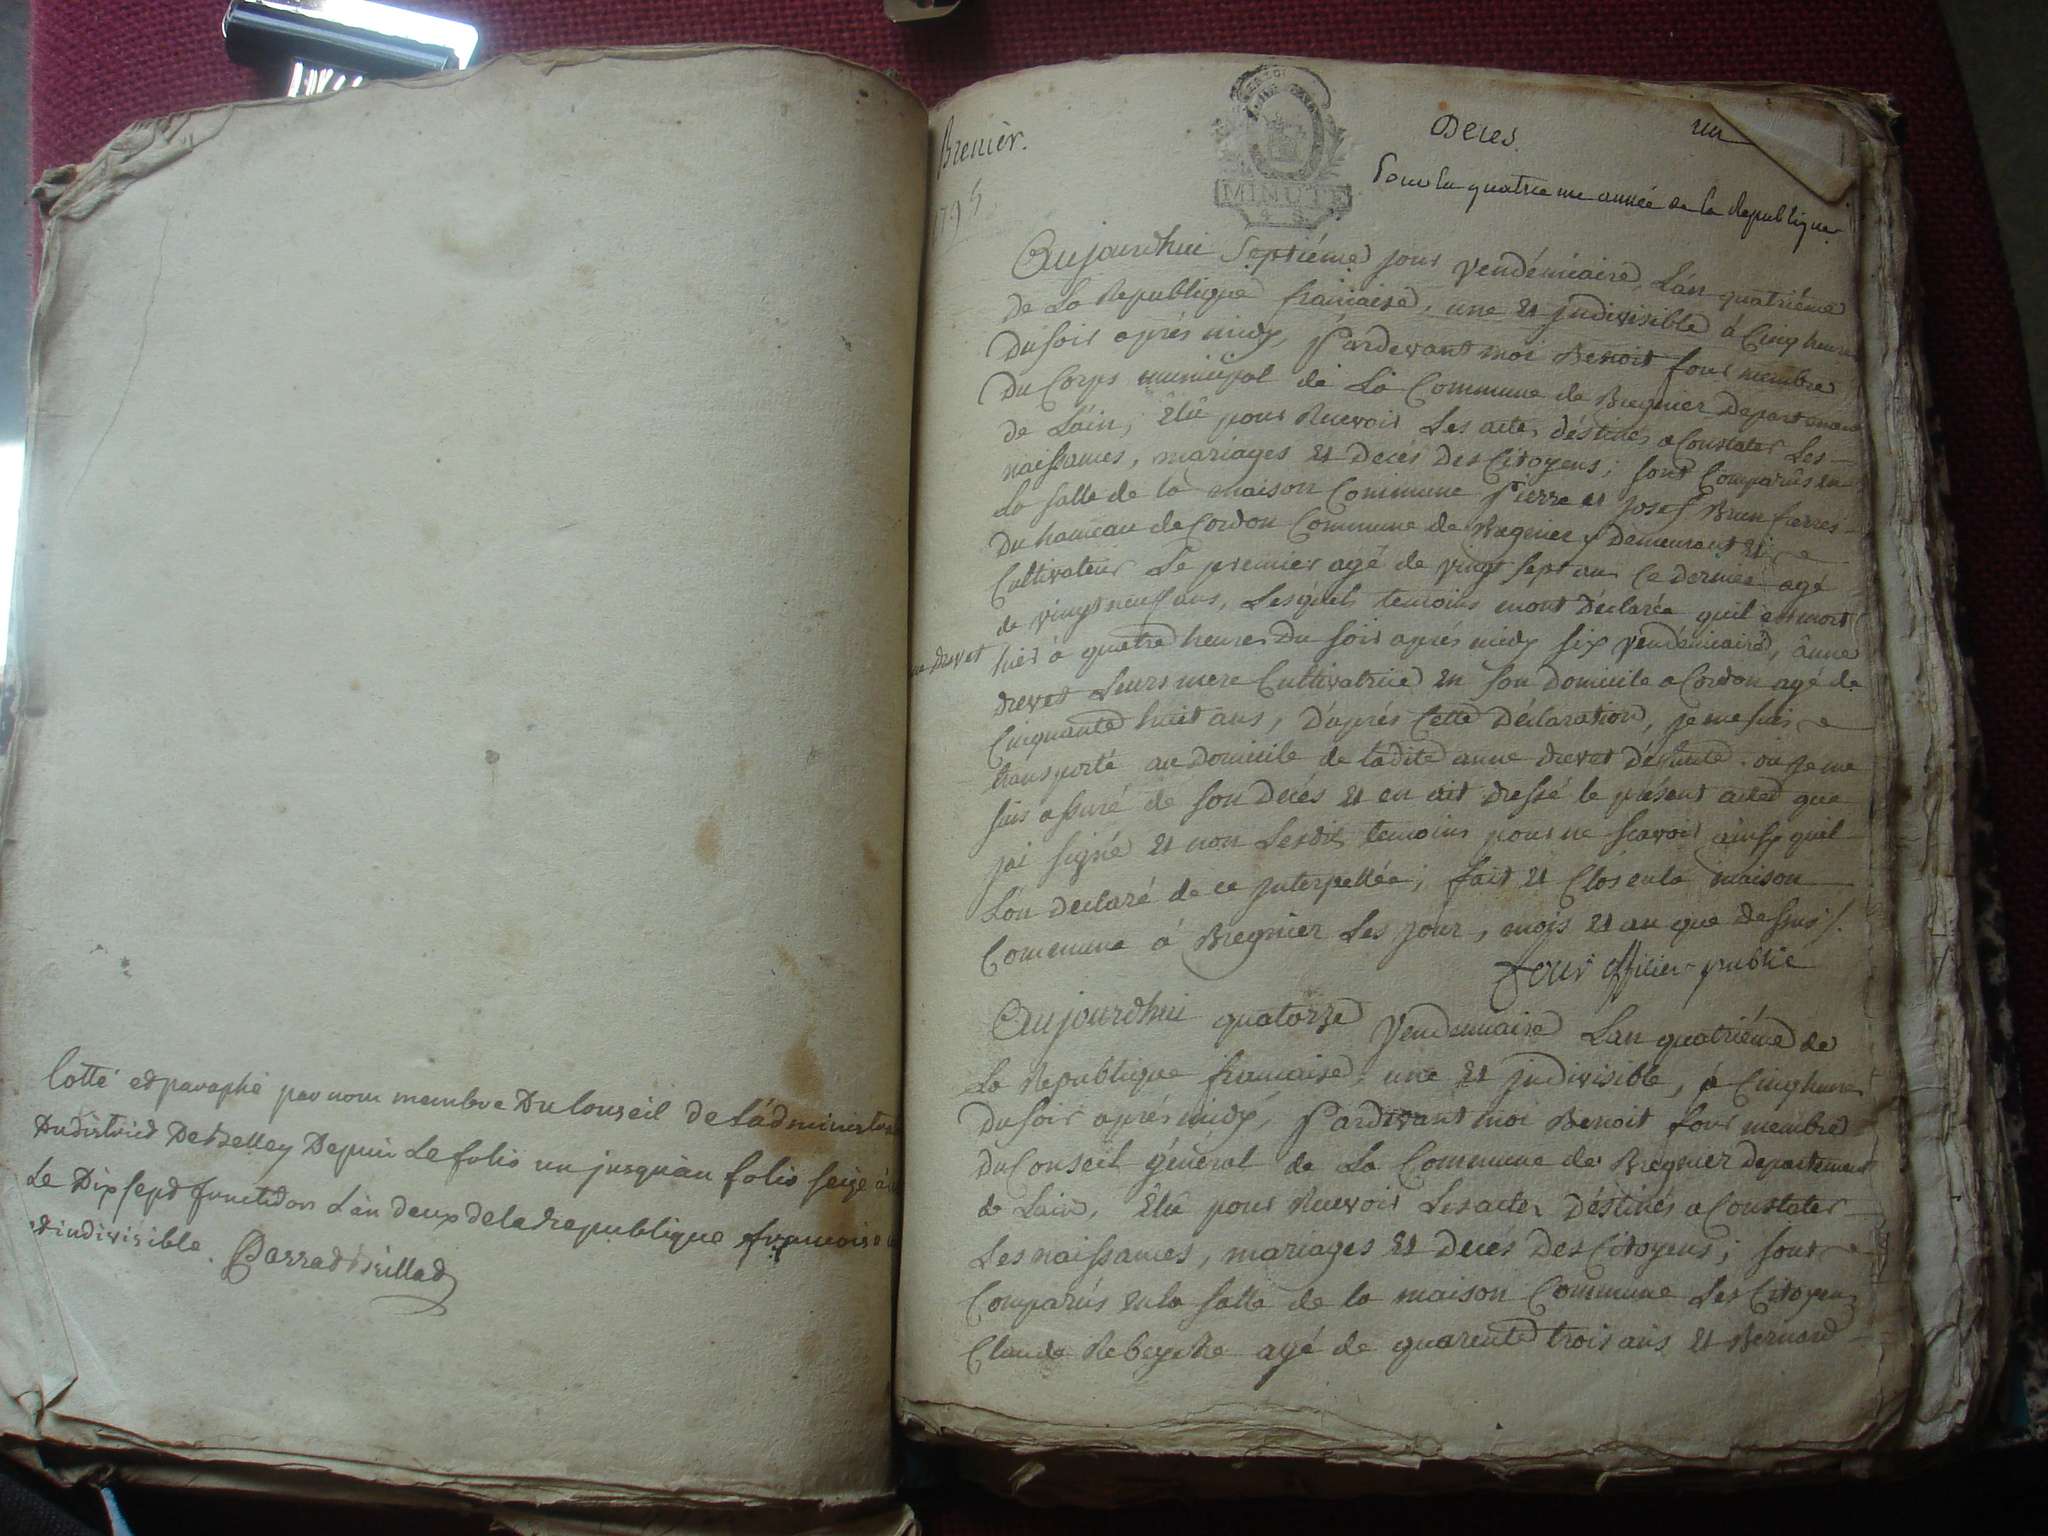 Cotté et paraphé par nous membre Du Conseil De L'administration
Du district De Belley Depuis Le folio un jusquau folio seize
Le Dix sept fructidor L'an deux de la republique francoise
indivisible.
Brenier.
1795
MINUTE
Deces. un
Pour la quatrieme année de la Republique
Aujourdhui Septiéme jour Vendémiaire, L'an quatriéme
de La Republique francaise, une et Jndivisible à Cinq heures
Du soir aprés midy, Pardevant moi Benoit four membre
Du Corps municipal de La Commune de Bregnier Departement
de L'ain, Elû pour Recevoir Les actes déstinés a Constater Les
naissances, mariages et Decés Des Citoyens; sont Comparûs en
La salle de la maison Commune Pierre et Josef Brun freres
Du hameau de Cordon Commune de Bregnier y Demeurant et
Cultivateur Le premier agé de vingt sept ans Ce dernier agé
de vingt neuf ans, Lesquels temoins mont Déclarée quil est mort
hier à quatre heures Du soir aprés midy six Vendémiaire, ânne
drevet
drevet Leurs mere Cultivatrice en son Domicile a Cordon agé de
Cinquante huit ans, D'aprés Cette Déclaration, je me suis
transporté au Domicile de ladite anne drevet défunte. ou je me
suis assuré de son Decés et en ait dressé le présent acte que
jai signé et non Lesdits temoins pour ne scavoir ainsy quil
L'on declaré de ce Jnterpellée; fait et Clos en la maison
Commune à Bregnier Les jour, mois et an que dessus /.
four officier public
Aujourdhui quatorze Vendemiaire Lan quatriéme de
La Republique francaise, une et jndivisible, à Cinq heures
Du soir aprés midy, Pardevant moi Benoit four membre
Du Conseil général de La Commune de Bregnier departement
de Lain, Elû pour Recevoir Les actes Déstinés a Constater
Les naissances, mariages et Decés Des Citoyens; sont
Comparûs en la salle de la maison Commune Les Citoyens
Claude agé de quarente trois ans et Bernard